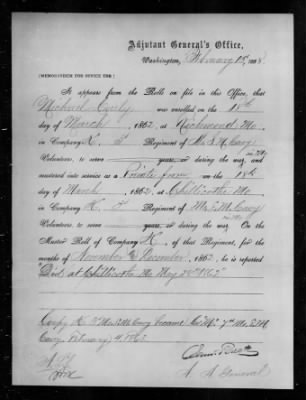 Adjutant General's Office,
Washington, February 188
(MEMORANDUM FOR OFFICE USE.)
It appears from the Rolls on file in this Office, that
Michael was enrolled on the 18th
day of March 1862 at Richmond Mo
in Company Regiment of Mo S M Cavy
Volunteers, to serve years, or during the war, and
mustered into service as a Private from on the 18th
day of March, 1862, at Chillicothe Mo
in Company K, Regiment of Mo S M Cavy
Volunteers, to serve years, or during the war. On the
Muster Roll of Company K, of that Regiment, for the
months of November & December, 1862, he is reported
"Died at Chillicothe Mo May 28th 1862"
Compy K Mo S M Cavy became Co 7th Mo S M
Cavy February 4 1863.
A A General